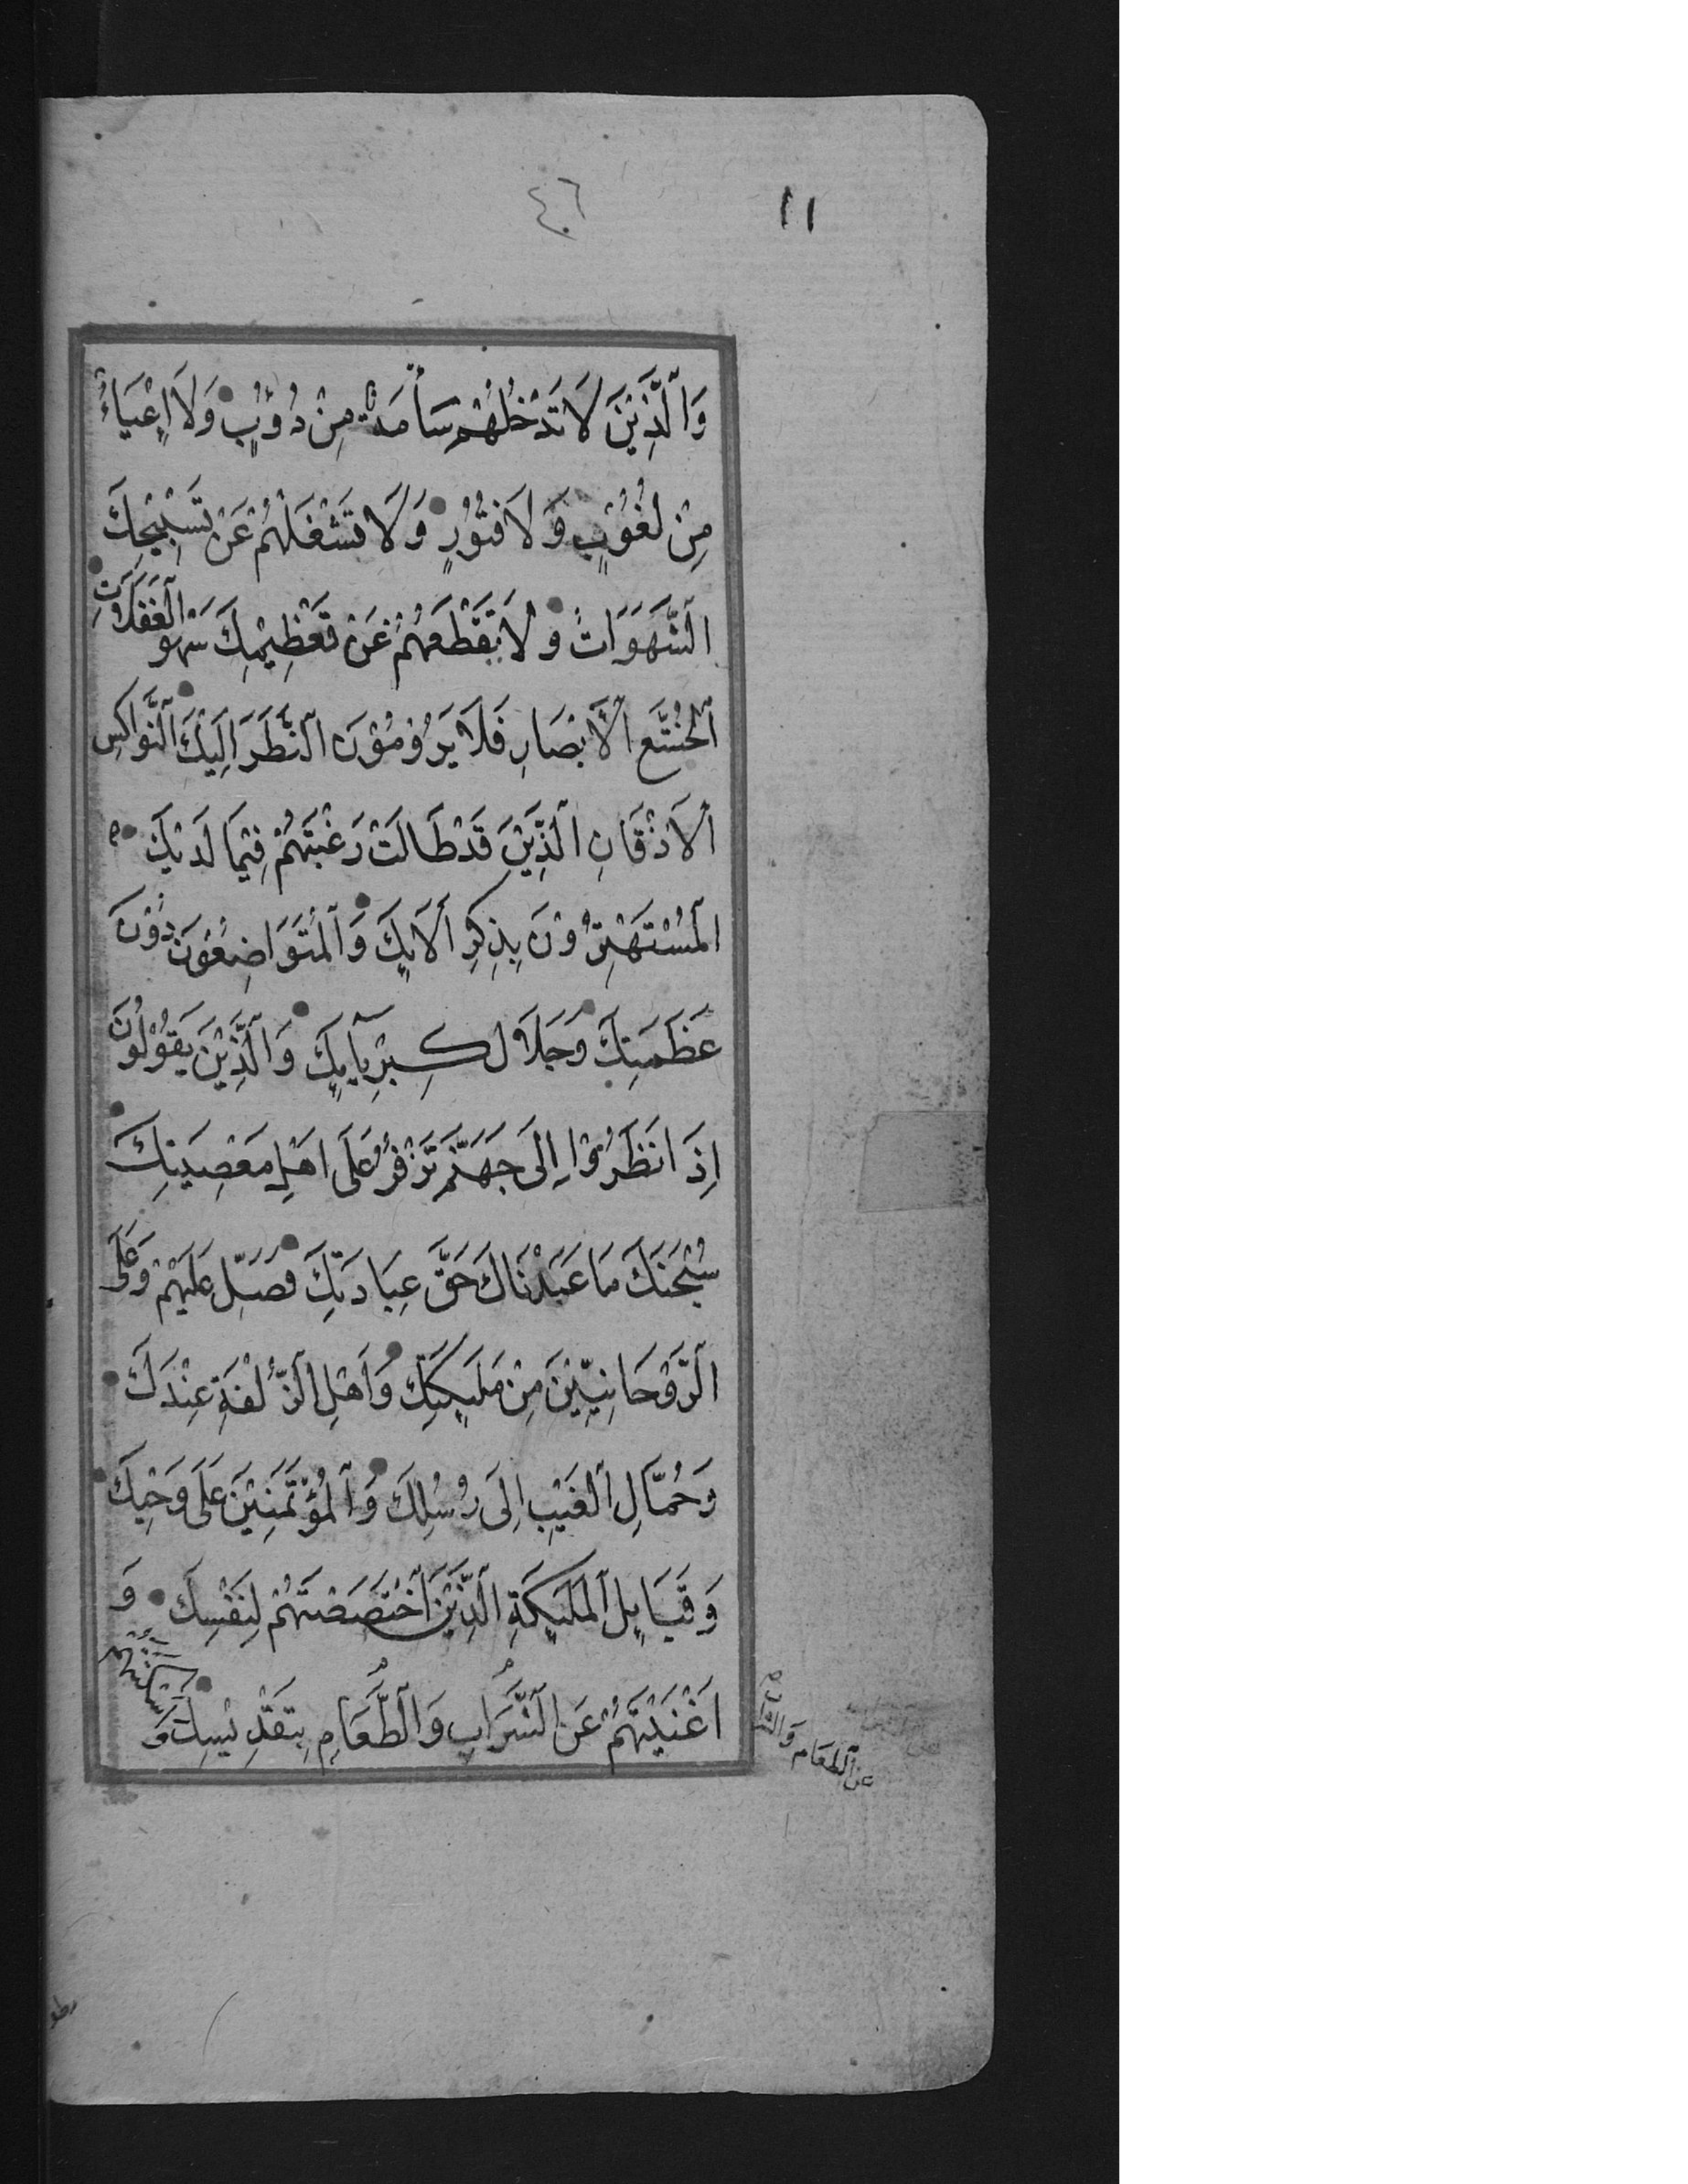 ٤٦ ١١
وَالَّذِيْنَ لَا تَدْخُلُهُمْ سَأْمَةٌ مِنْ دُؤُبٍ وَلَا اِعْيَاءٌ
مِنْ لُغُوْبٍ وَلَا فُتُوْرٍ وَلَا تَشْغَلُهُمْ عَنْ تَسْبِيْحِكَ
الشَّهَوَاتُ وَلَا يَقْطَعُهُمْ عَنْ تَعْظِيْمِكَ سَهْو الْغَفَلَاتِ
الْخُشَّعِ الْاَبْصَارِ فَلَا يَرُوْمُوْنَ النَّظَرَ اِلَيْكَ النَّوَاكِسِ
الْاَذْقَانِ الَّذِيْنَ قَدْ طَالَتْ رَغْبَتُهُمْ فِيْمَا لَدَيْكَ
الْمُسْتَهْتِرُوْنَ بِذِكْرِ اٰلَايِكَ وَالْمُتَوَاضِعُوْنَ دُوْنَ
عَظَمَتِكَ وَجَلَالِ كِبْرِيَايِكَ وَالَّذِيْنَ يَقُوْلُوْنَ
اِذَا نَظَرُوْا اِلَى جَهَنَّمَ تَزْفِرُ عَلَى اَهْلِ مَعْصِيَتِكَ
سُبْحٰنَكَ مَا عَبَدْنَاكَ حَقَّ عِبَادَتِكَ فَصَلِّ عَلَيْهِمْ وَعَلَى
الرَّوْحَانِيِّيْنَ مِنْ مَلٰيِكَتِكَ وَاَهْلِ الزُّلْفَةِ عِنْدَكَ
وَحُمَّالِ الْغَيْبِ اِلَى رُسُلِكَ وَالْمُؤْتَمَنِيْنَ عَلَى وَحْيِكَ
وَقَبَايِلِ الْمَلٰيِكَةِ الَّذِيْنَ اخْتَصَصْتَهُمْ لِنَفْسِكَ وَ
اَغْنَيْتَهُمْ عَنِ الشَّرَابِ وَالطَّعَامِ بِتَقْدِيْسِكَ وَ اَسْكَنْتَهُمْ
عن الطعام والشراب